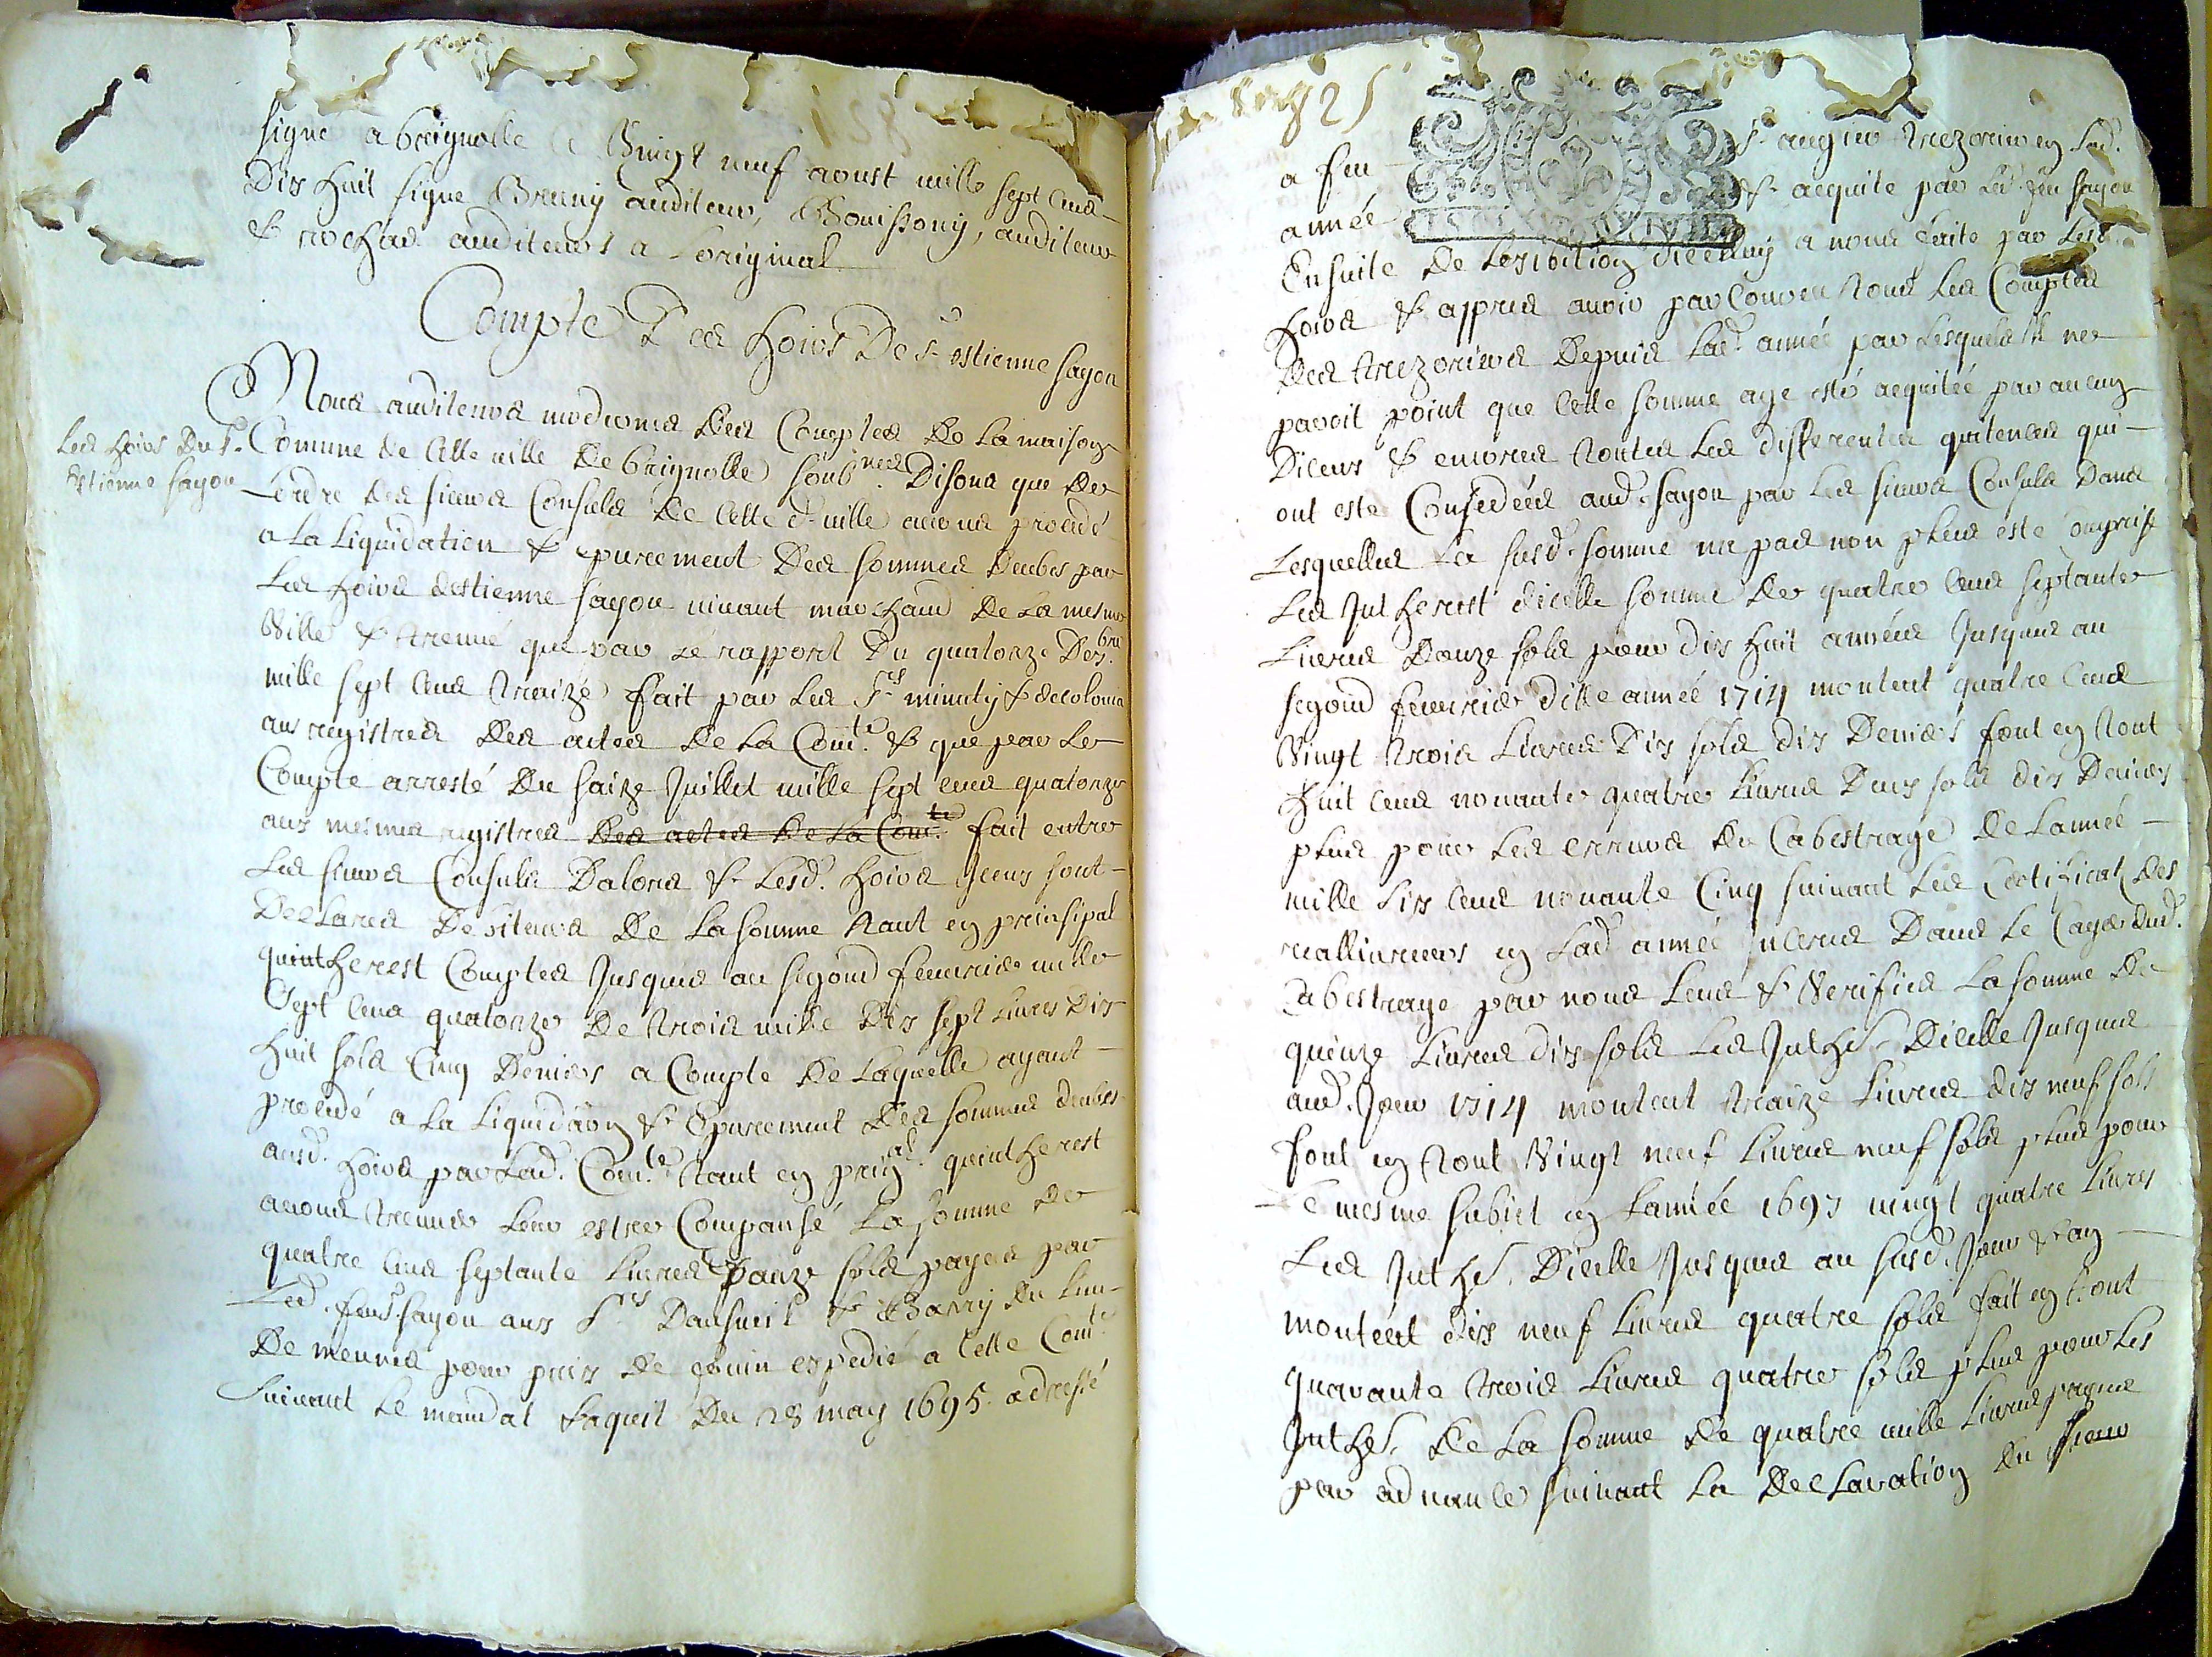 signé a brignolle le Vingt neuf aoust mille sept cens
Dix huit signe Bruny auditeur, Bouissony, auditeur
& rochas auditeurs a loriginal
Compte Des hoirs De Sr estienne fayon
Nous auditeurs modernes Des Comptes De La maison
Les hoirs Du Sr.
Estienne fayon
Comune de Cette ville De brignolle soubnes. Disons que De
Lordre des sieurs Consuls De Cette d. ville avons procedé
a La Liquidation & epurement Des sommes deubes par
Les hoirs destienne fayon vivant marchand De La mesme
Ville & treuvé que par Le rapport Du quatorze Dexbre.
mille sept cens traize fait par Les Srs minuty & decolonia
aux registres Des actes De La Comte. & que par Le
Compte arresté Du saize Juillet mille sept cens quatorze
aux mesmes registres Des actes De La Comte. fait entre
Les sieurs Consuls Dalors & Lesd. hoirs Iceux sont
Declares Debiteurs De La somme tant en prinsipal
quintherest Comptes Jusques au segond fevrier mille
Sept cens quatorze De trois mille Dix sept Livres Dix
huit sols Cinq Deniers a Compte De Laquelle ayant
procedé a La Liquidaon & Epurement Des sommes deubes
ausd. hoirs par Lad. Comte. tant en prinal. quintherest
avons treuvé Leur estre Compansé La somme De
quatre cens septante Livres Douze sols payes par
Led. feu Sr fayon aux Srs Dansueil & Barry du Luc
De meunes pour prix De fouin expedié a Cette Comte
Suivant Le mandat & aquit Du 28 may 1695. adressé
825
a feu Sr. trezorier en Lad.
année & acquite par Led. feu fayon
Ensuite De Lexibition dicelluy a nous faite par Lesd.
hoirs & appres avoir parcouru tous Les Comptes
Des trezoriers Depuis Lad. année par Lesquels Il ne
paroit point que Cette somme aye esté acquitée par aucun
Diceux & encores toutes Les differentes quitences qui
ont este Consedées aud. fayon par Les sieurs Consuls Dans
Lesquelles La susd. somme na pas non plus este comprise
Les Intherest dicelle somme De quatre cens septante
Livres Douze sols pour dix huit années Jusques au
segond fevrier Dicte année 1714 montent quatre cens
Vingt trois Livres Dix sols dix Deniers font en tout
huit cens nonante quatre Livres Deux sols dix Deniers
plus pour Les erreurs Du Cabestrage De Lannée
mille six cens nonante Cinq suivant Les Certificat des
reallivreurs en Lad. année Inceres Dans Le Cayer dud.
Cabestrage par nous Leus & Verifies La somme De
quinze Livres dix sols Les Inthst. Dicelle Jusques
aud. Jour 1714 montent traize Livres dix neuf sols
font en tout Vingt neuf Livres neuf sols plus pour
Le mesme subiet en Lannée 1697 vingt quatre Livres
Les Inthst. Dicelle Jusques au susd. Jour & an
montent dix neuf Livres quatre sols fait en tout
quarante trois Livres quatre sols plus pour Les
Inthst. De La somme De quatre mille Livres payées
par advance suivant La Declaration Du sieur